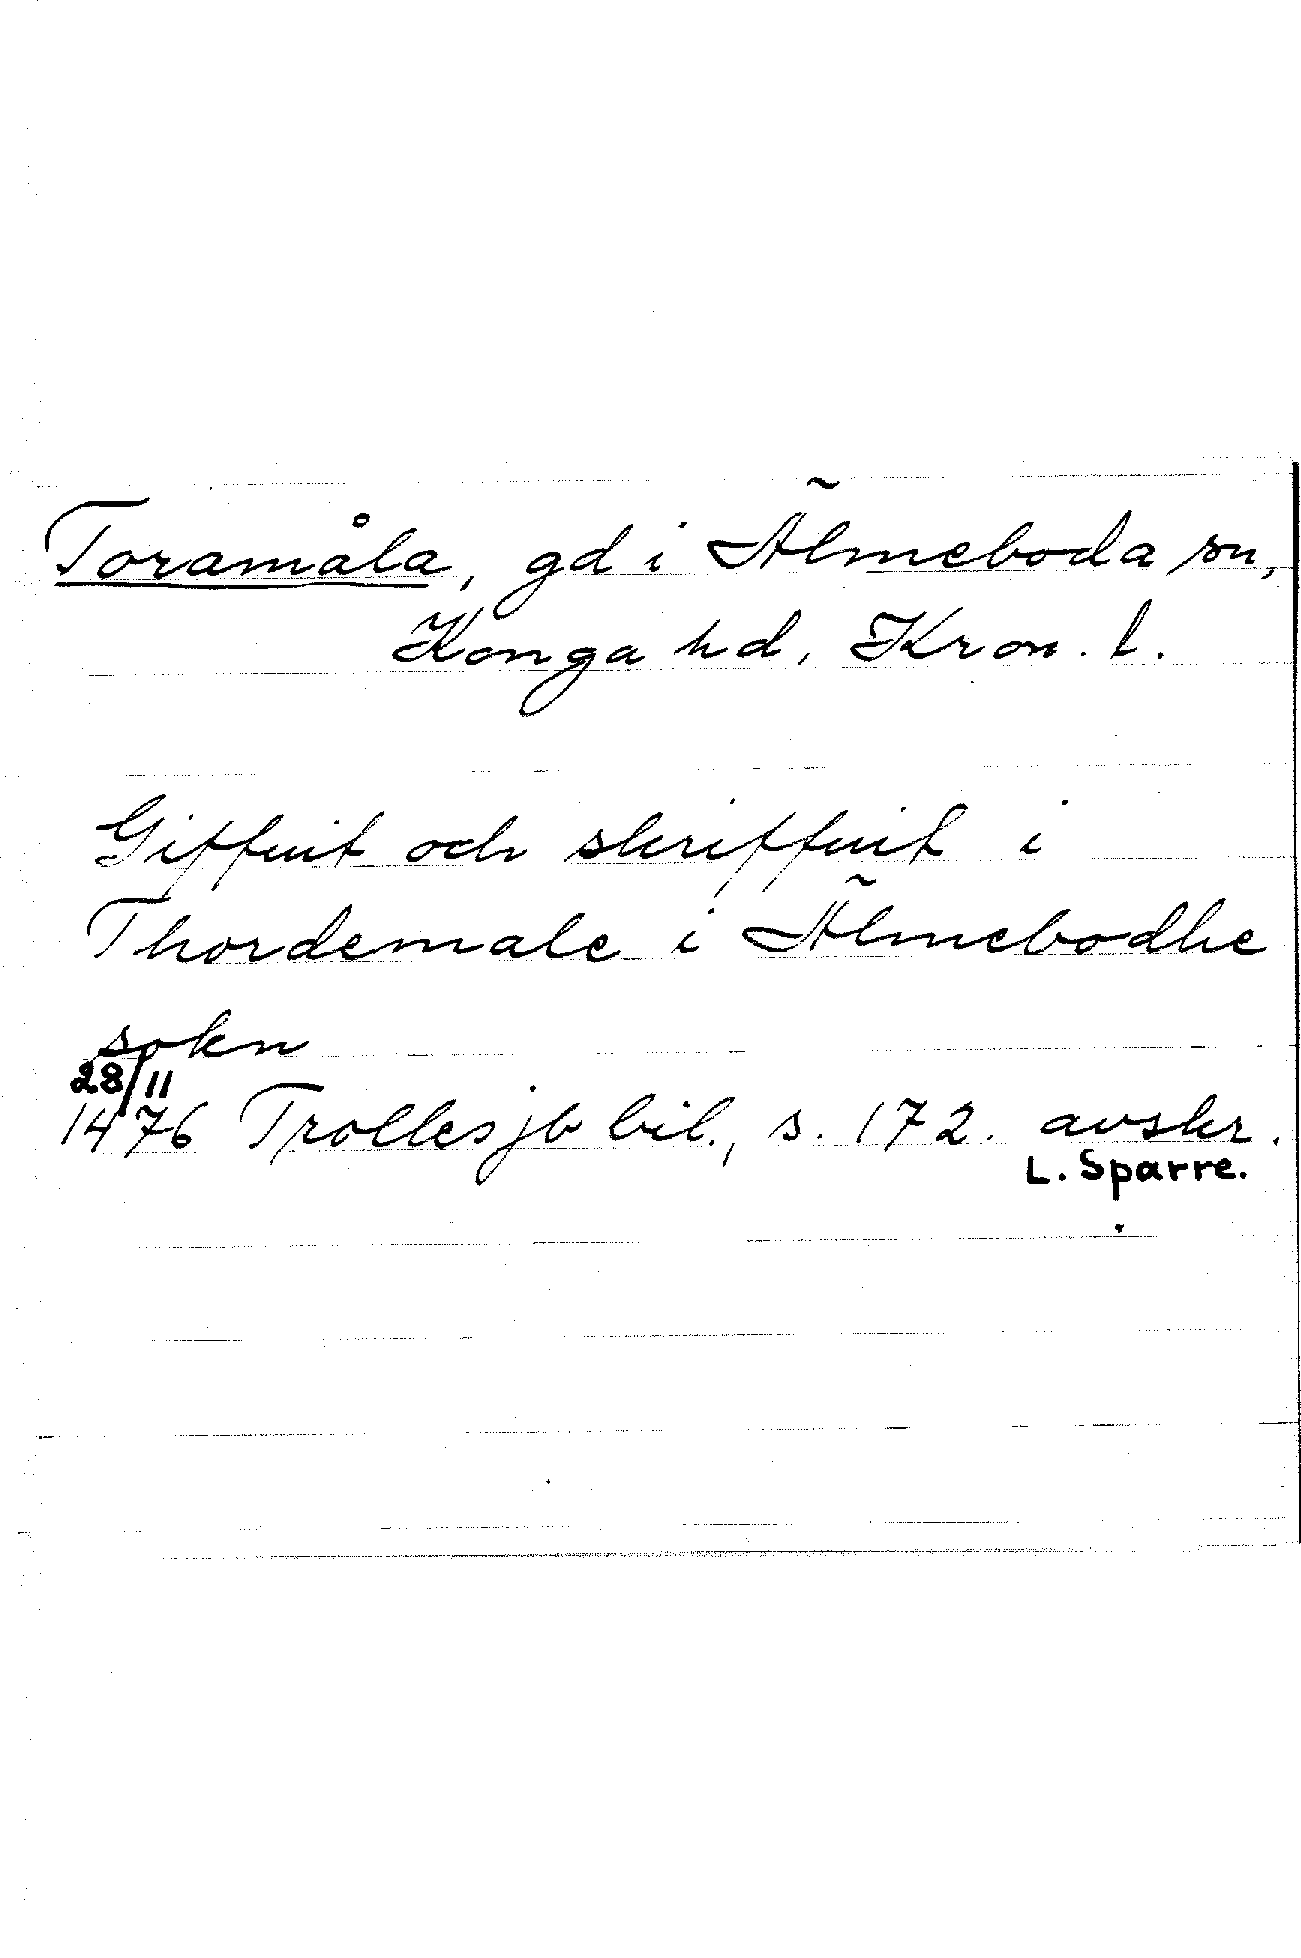 Toramåla, gd i Älmeboda sn,
Konga hd, Kron. l.
Giffuit och skriffuit i
Thordemale i Älmebodhe
sokn
28/11
1476 Trolles jb bil., s. 172. avskr.
L. Sparre.